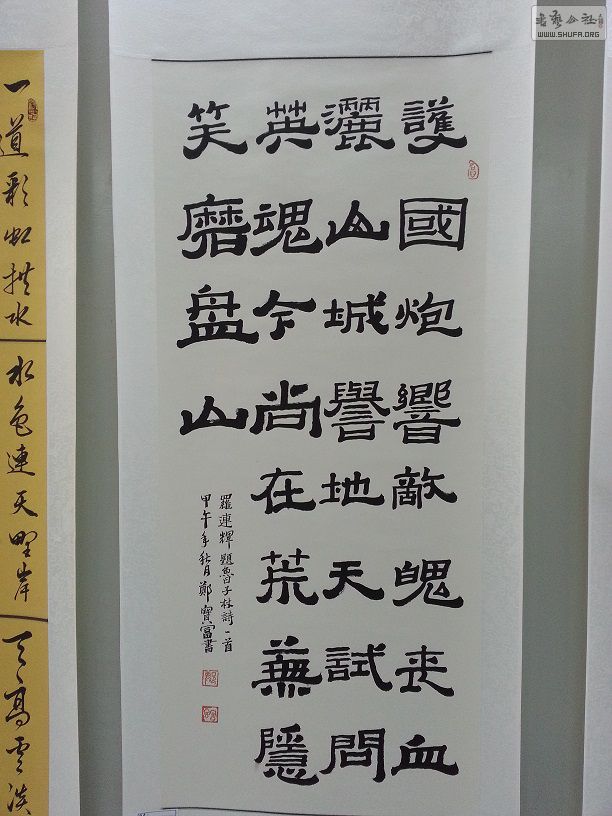 護國炮響敵魄喪血
灑山城譽地天試問
英魂今尚在荒蕪隱
笑磨盘山
羅連輝題魯子材詩一首
甲午年秋月鄭寶富書
一道彩虹拱水
水色連天野岸
天高雲淡
書藝公社
WWW.SHUFA.ORG